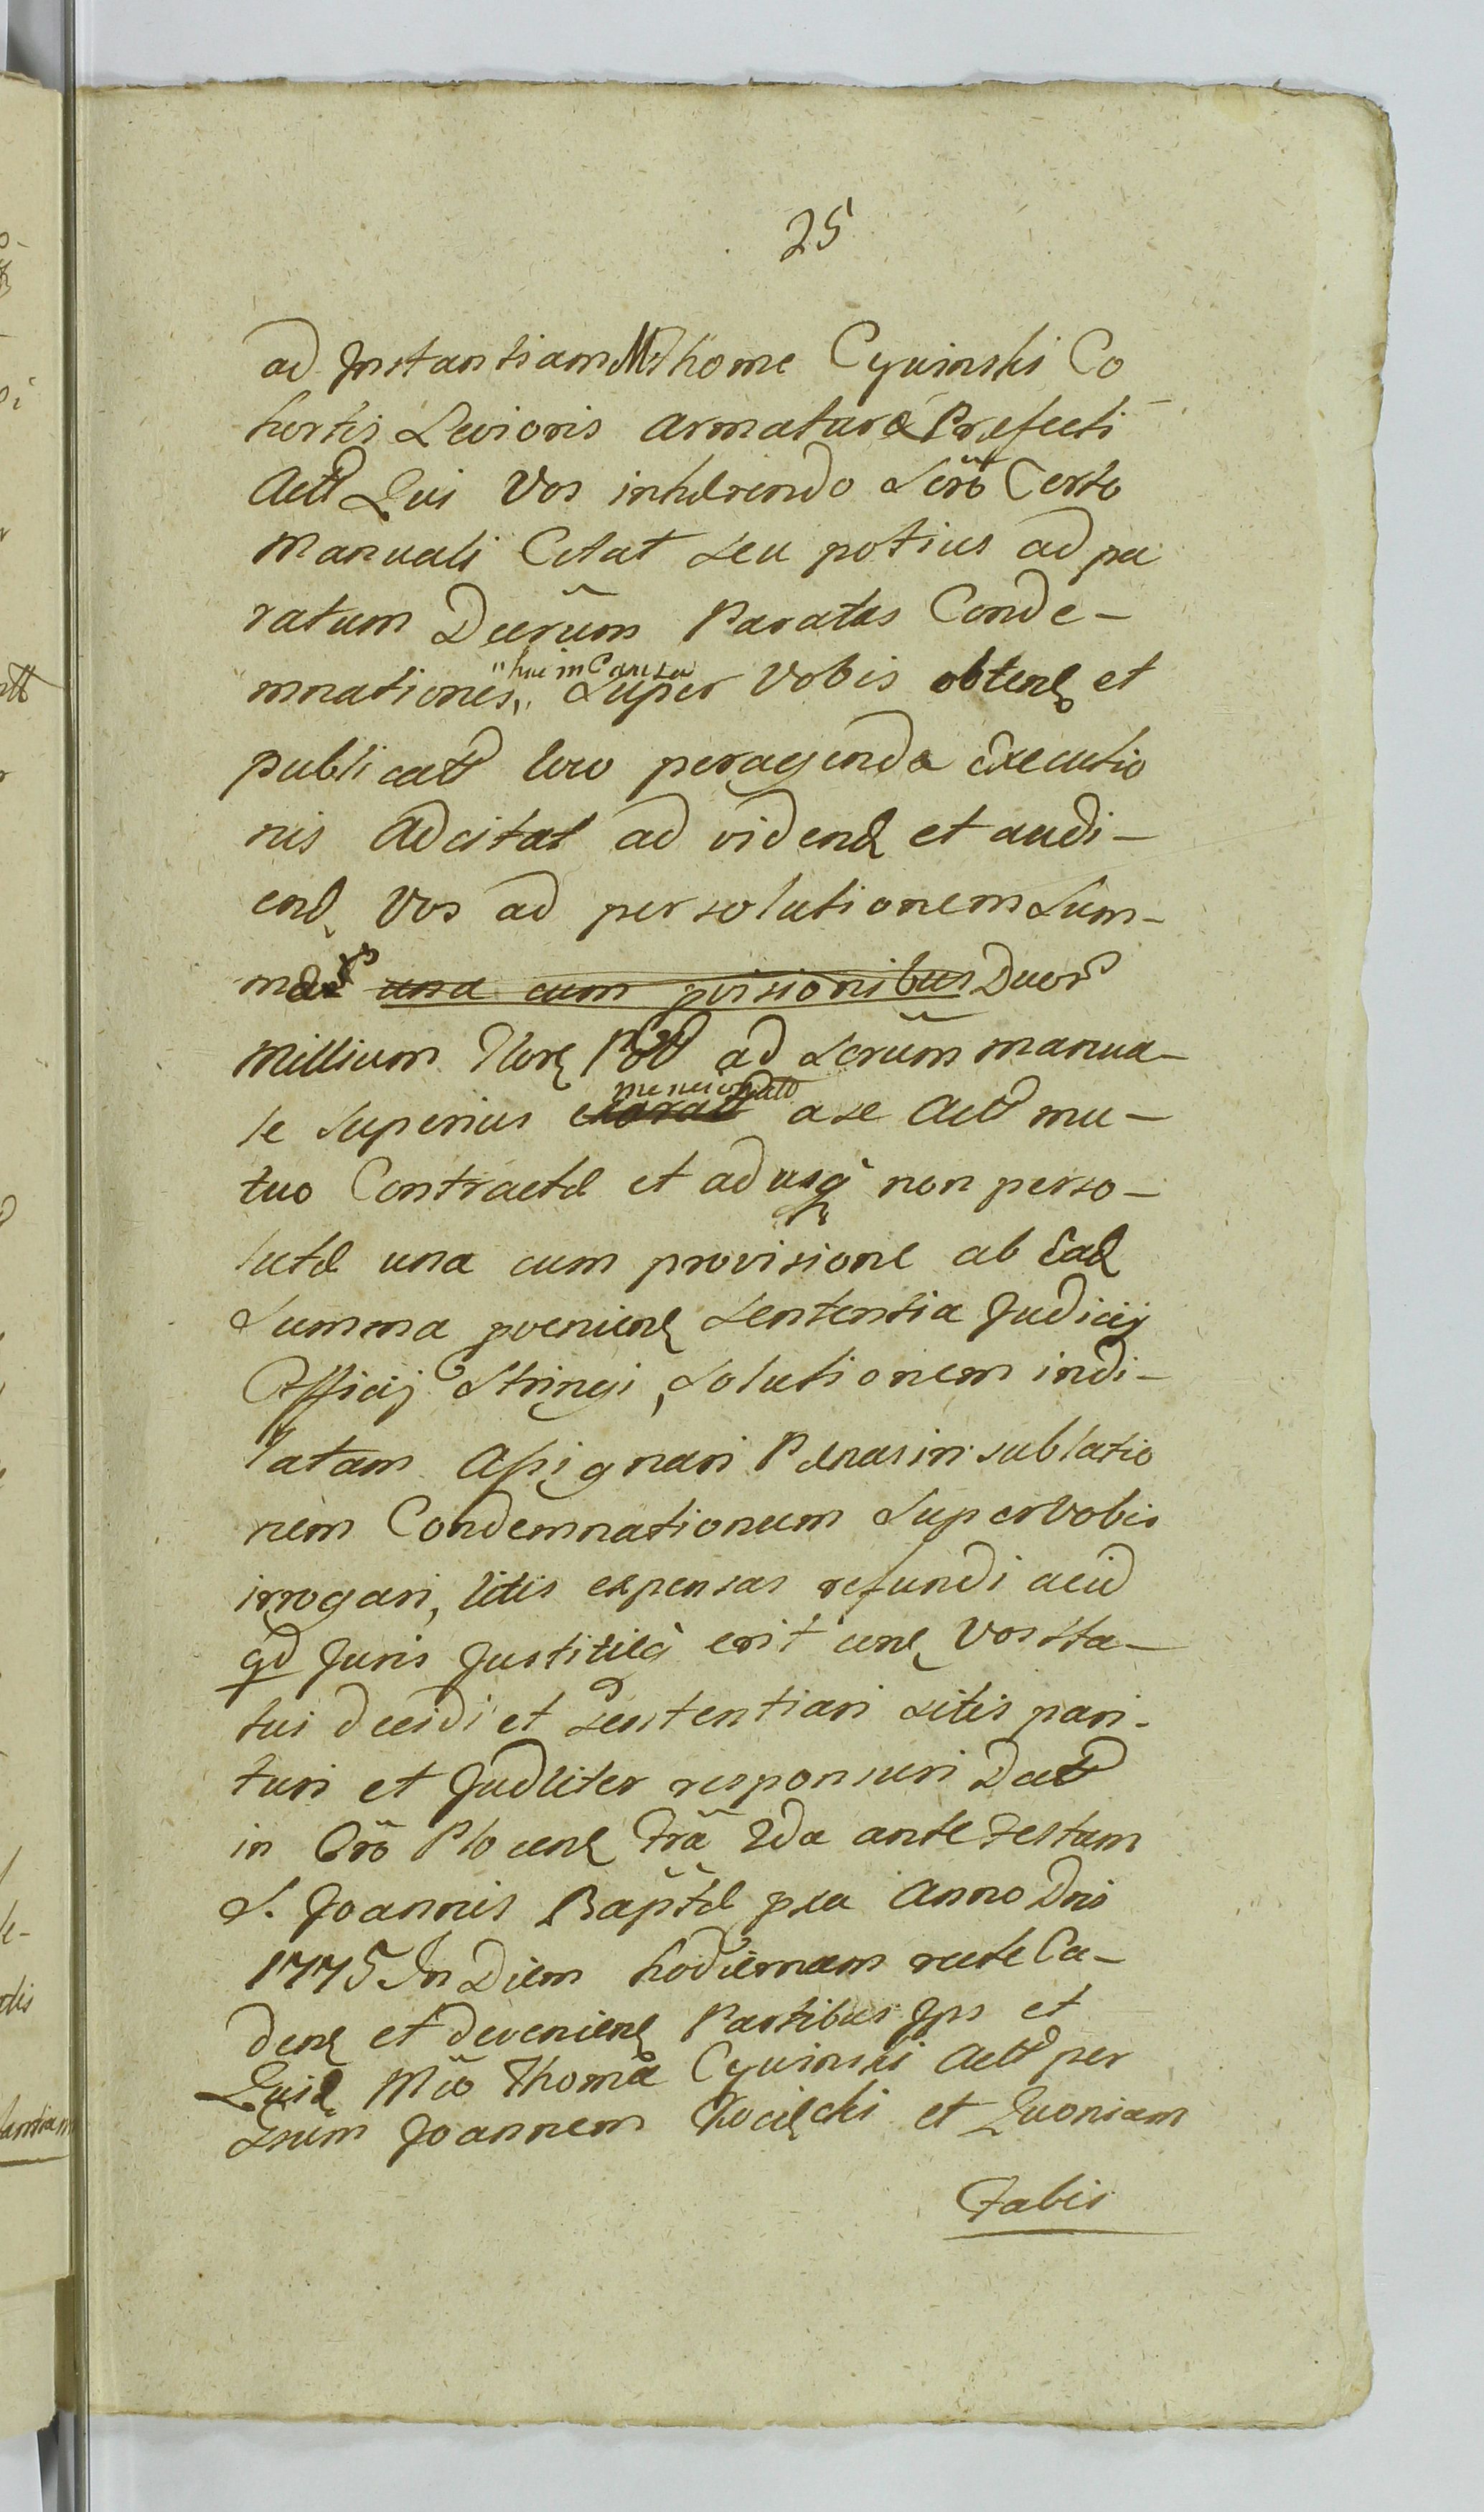 25
ad Instantiam M Thome Cywinski Co
hortis Levioris armaturæ Præfecti
Act Qui Vos inhærendo Scrõ Certo
Manuali Citat seu potius ad pa
ratum Decrũm Paratas Conde-
mnationes, "huc in Causa" super Vobis obtenꝭ et
publicatt loco peragenda Executio
nis Adcitat ad videndꝭ et audi-
endꝭ Vos ad persolutionem Sum-
mæ una cum provisionibus Duor
Millium Florꝭ Poll ad Scrũm manua-
le superius exaratt mencionato a se Act mu-
tuo Contractæ et ad usq̃ non perso-
lutæ una cum provisione ab Eadꝭ
Summa provenienꝭ Sententia Judicij
Officij Stringi, Solutionem indi-
latam Assignari Pænas in sublatio
nem Condemnationum super Vobis
irrogari, litis expensas refundi acid
qd Juris Justitiæq̃ erit cenꝭ Vos sta-
tui decidi et Sententiari Sitis pari-
turi et Judliter responsuri Datt
in Crõ Plocenꝭ Frã 2da ante Festum
S. Joannis Bap̃tæ pxa Anno Dni
1775 In Diem hodiernam recte Ca-
denꝭ et devenienꝭ Partibus Ips et
Quidꝭ Mco Thoma Cywinski Act per
Gsum Joannem Kocięcki et Quoniam
Citatis